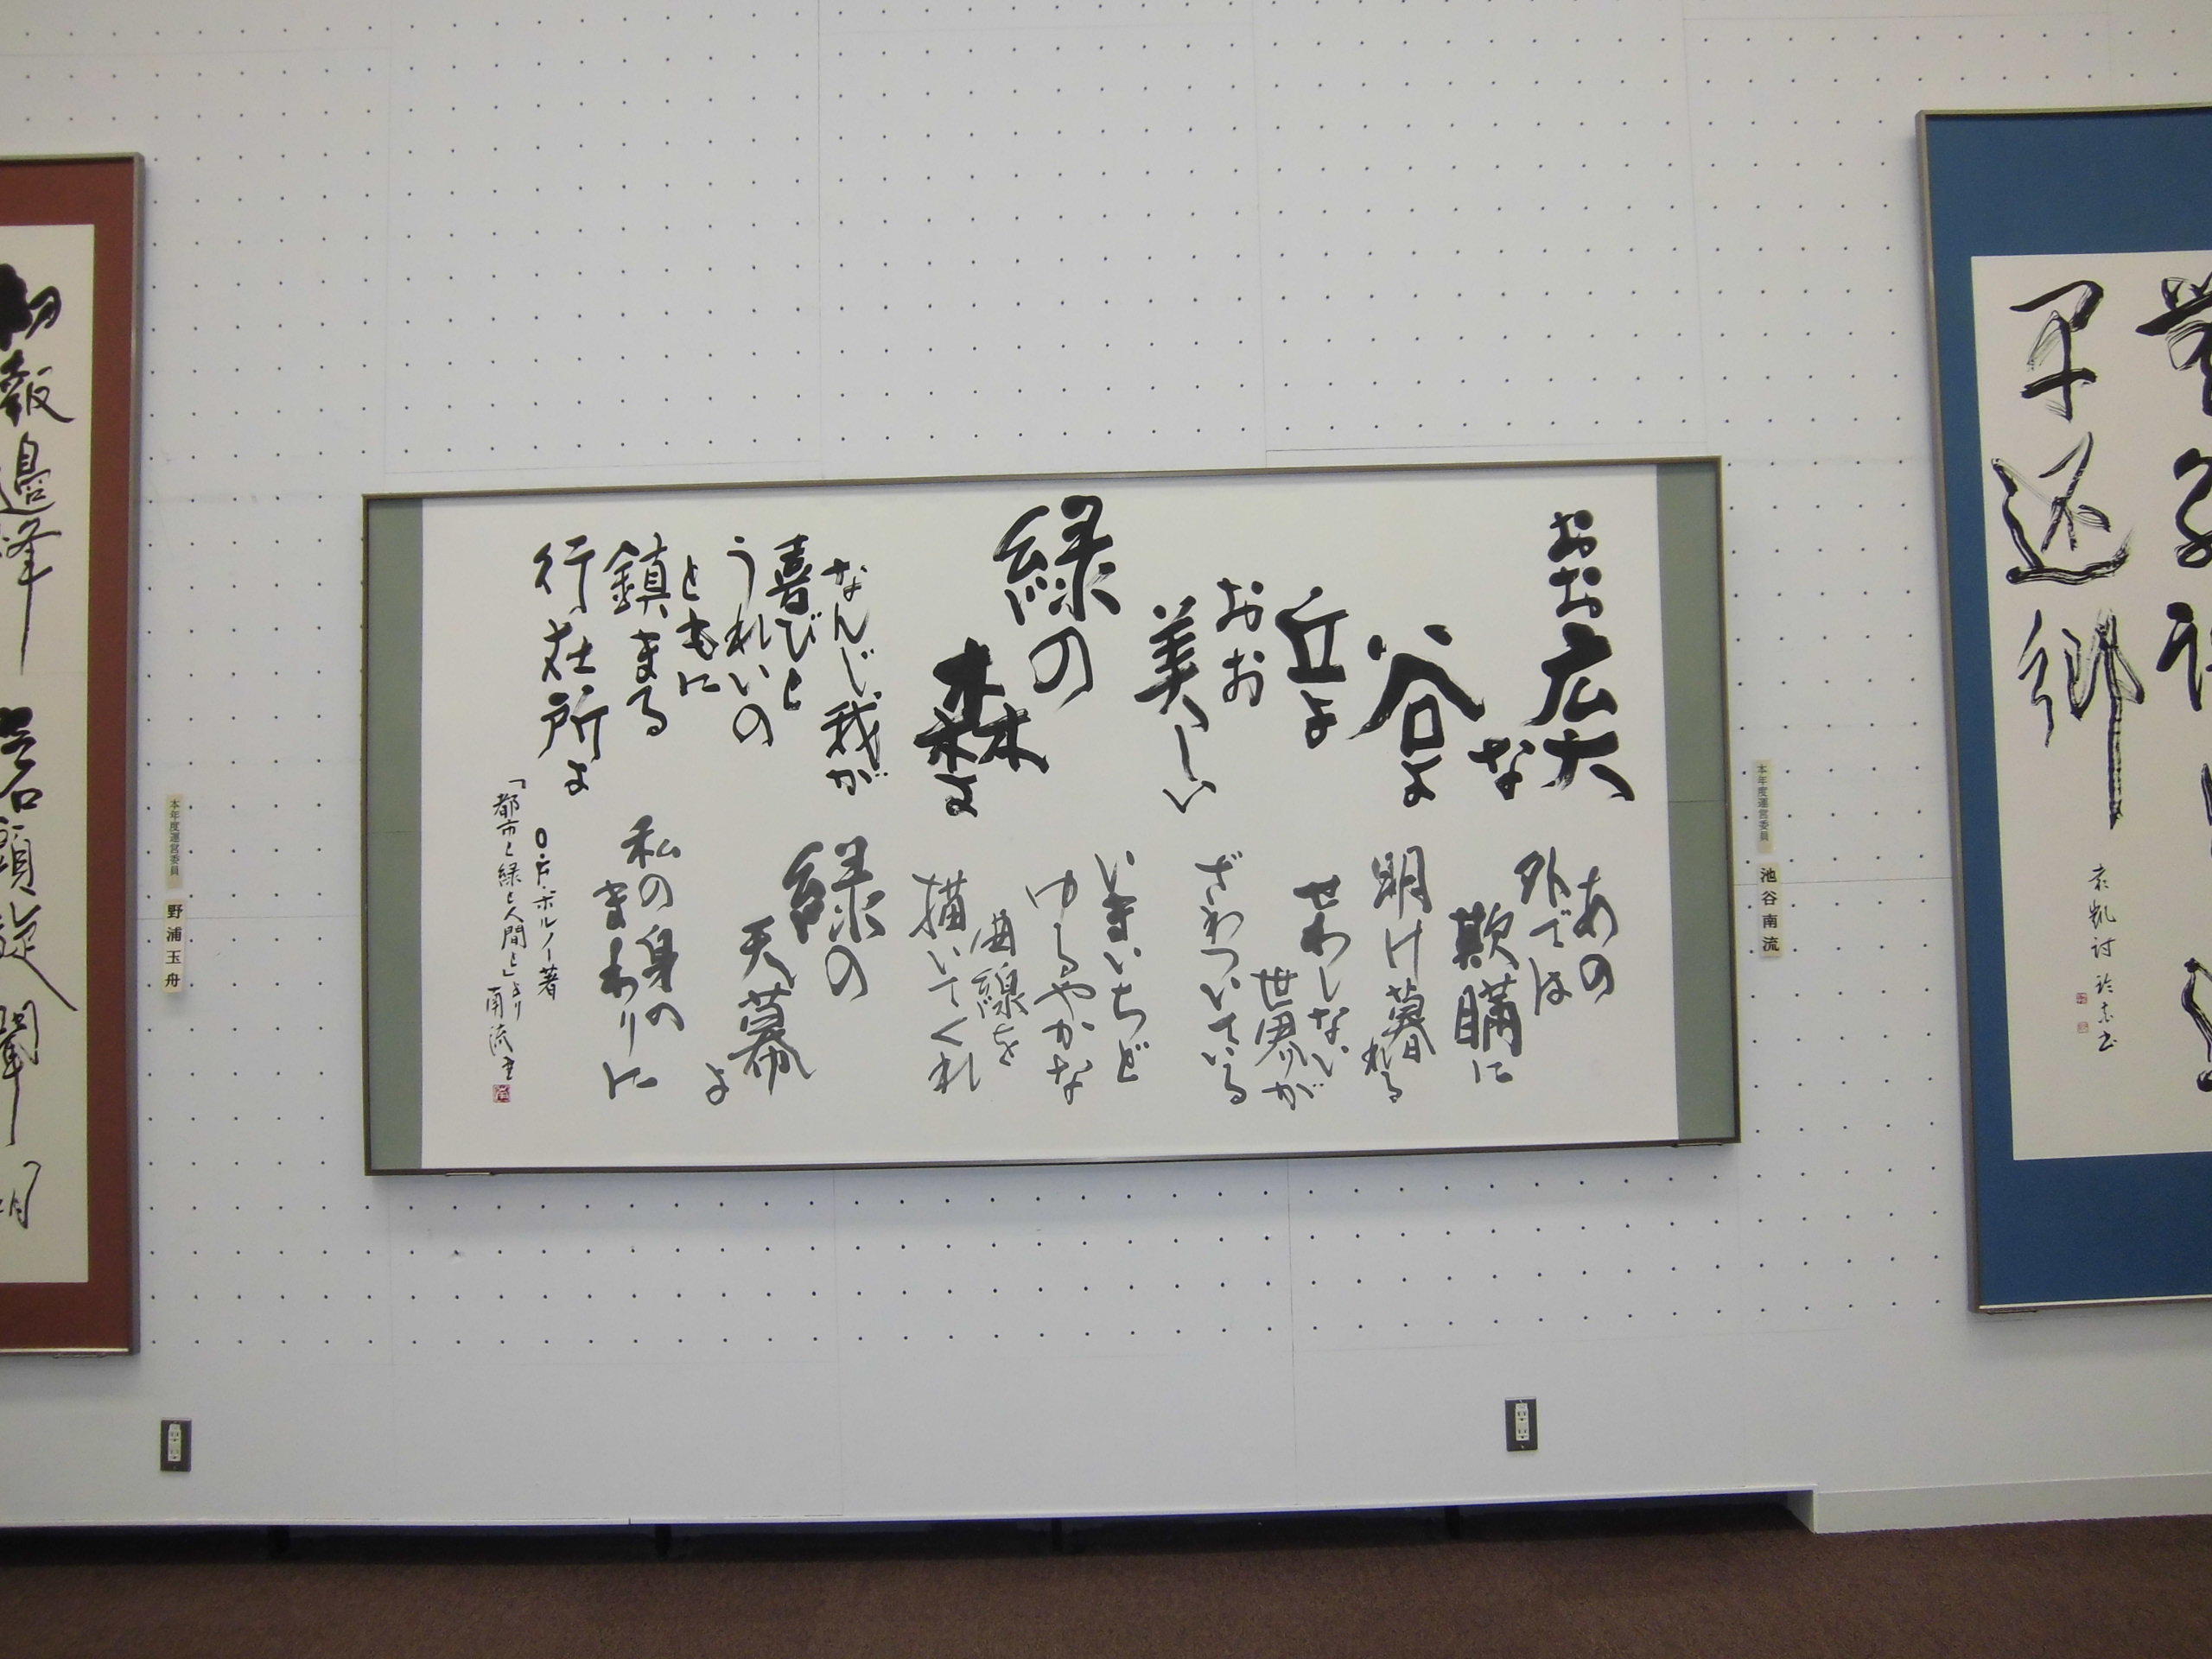 おお
広大
な
谷よ
丘よ
おお
美しい
緑の
森よ
なんじ我が
喜びと
うれいの
ともに
鎮まる
行在所よ
あの
外では
欺瞞に
明け暮れる
せわしない
世界が
ざわついている
いまいちど
ゆるやかな
曲線を
描いてくれ
緑の
天幕
よ
私の身の
まわりに
O・F・ボルノー著
「都市と緑と人間と」より
南流書
本年度運営委員
池谷南流
本年度運営委員
野浦玉舟
早還郷
袁凱詩
初報邊烽
照石頭旋